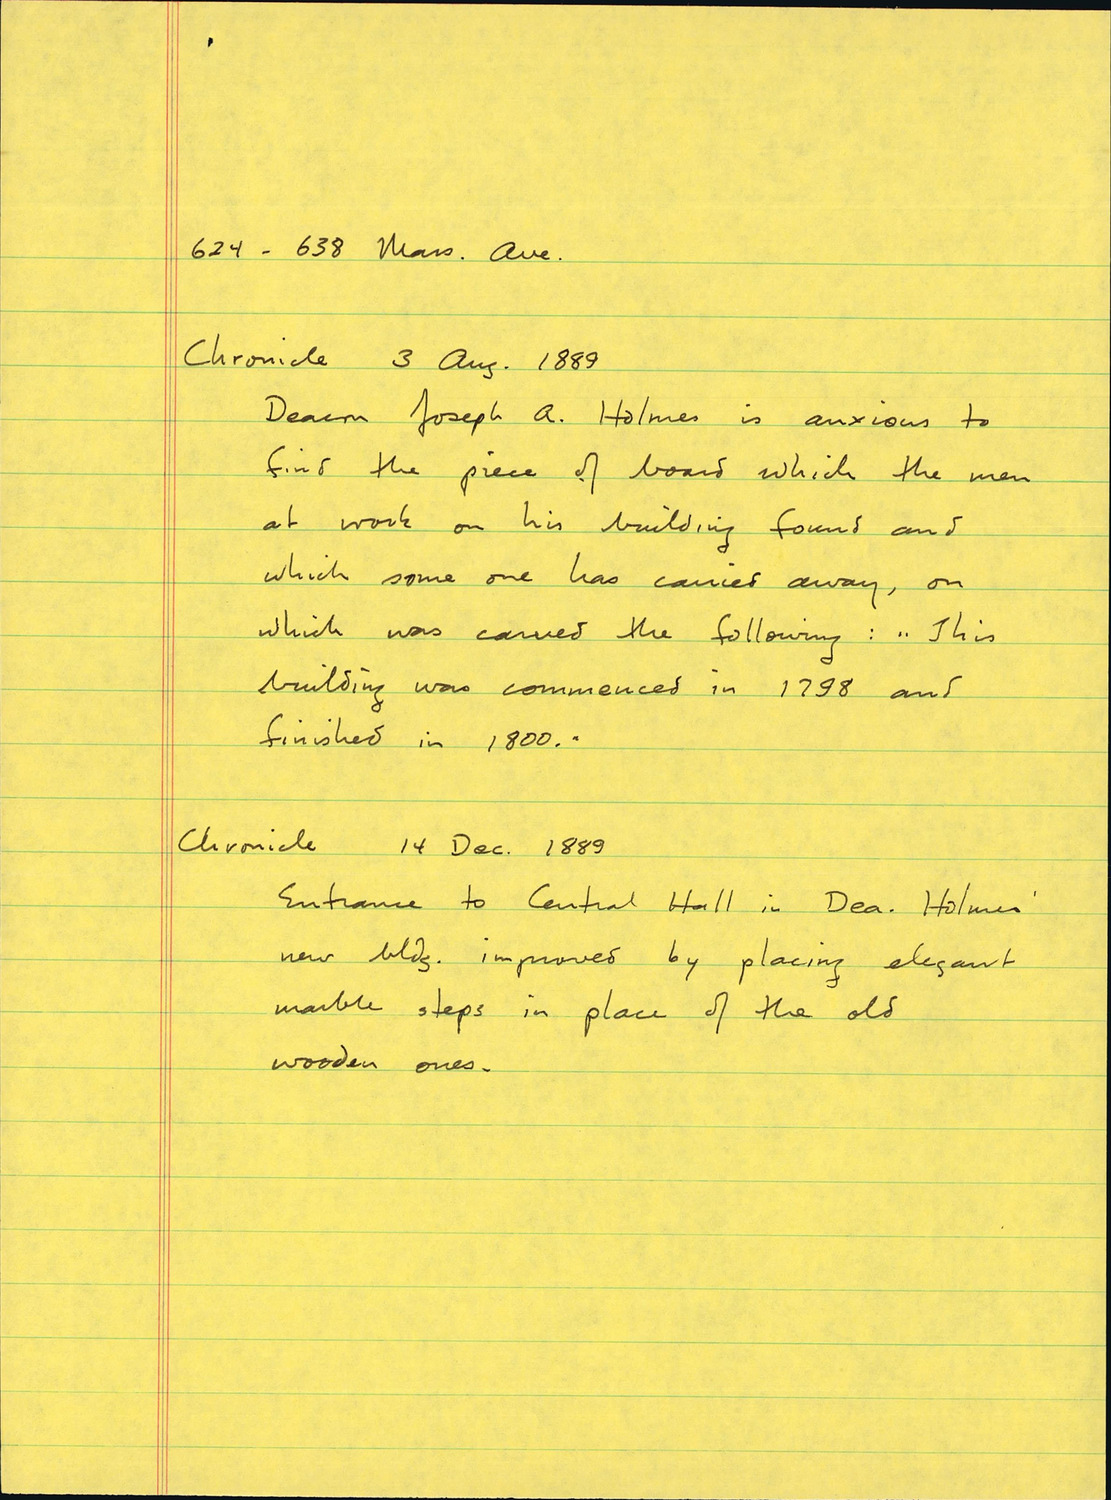 624 - 638 Mass. Ave.
Chronicle 3 Aug. 1889
Deacon Joseph A. Holmes is anxious to
find the piece of board which the men
at work on his building found and
which some one has carried away, on
which was carved the following : "This
building was commenced in 1798 and
finished in 1800."
Chronicle 14 Dec. 1889
Entrance to Central Hall in Dea. Holmes'
new bldg. improved by placing elegant
marble steps in place of the old
wooden ones.